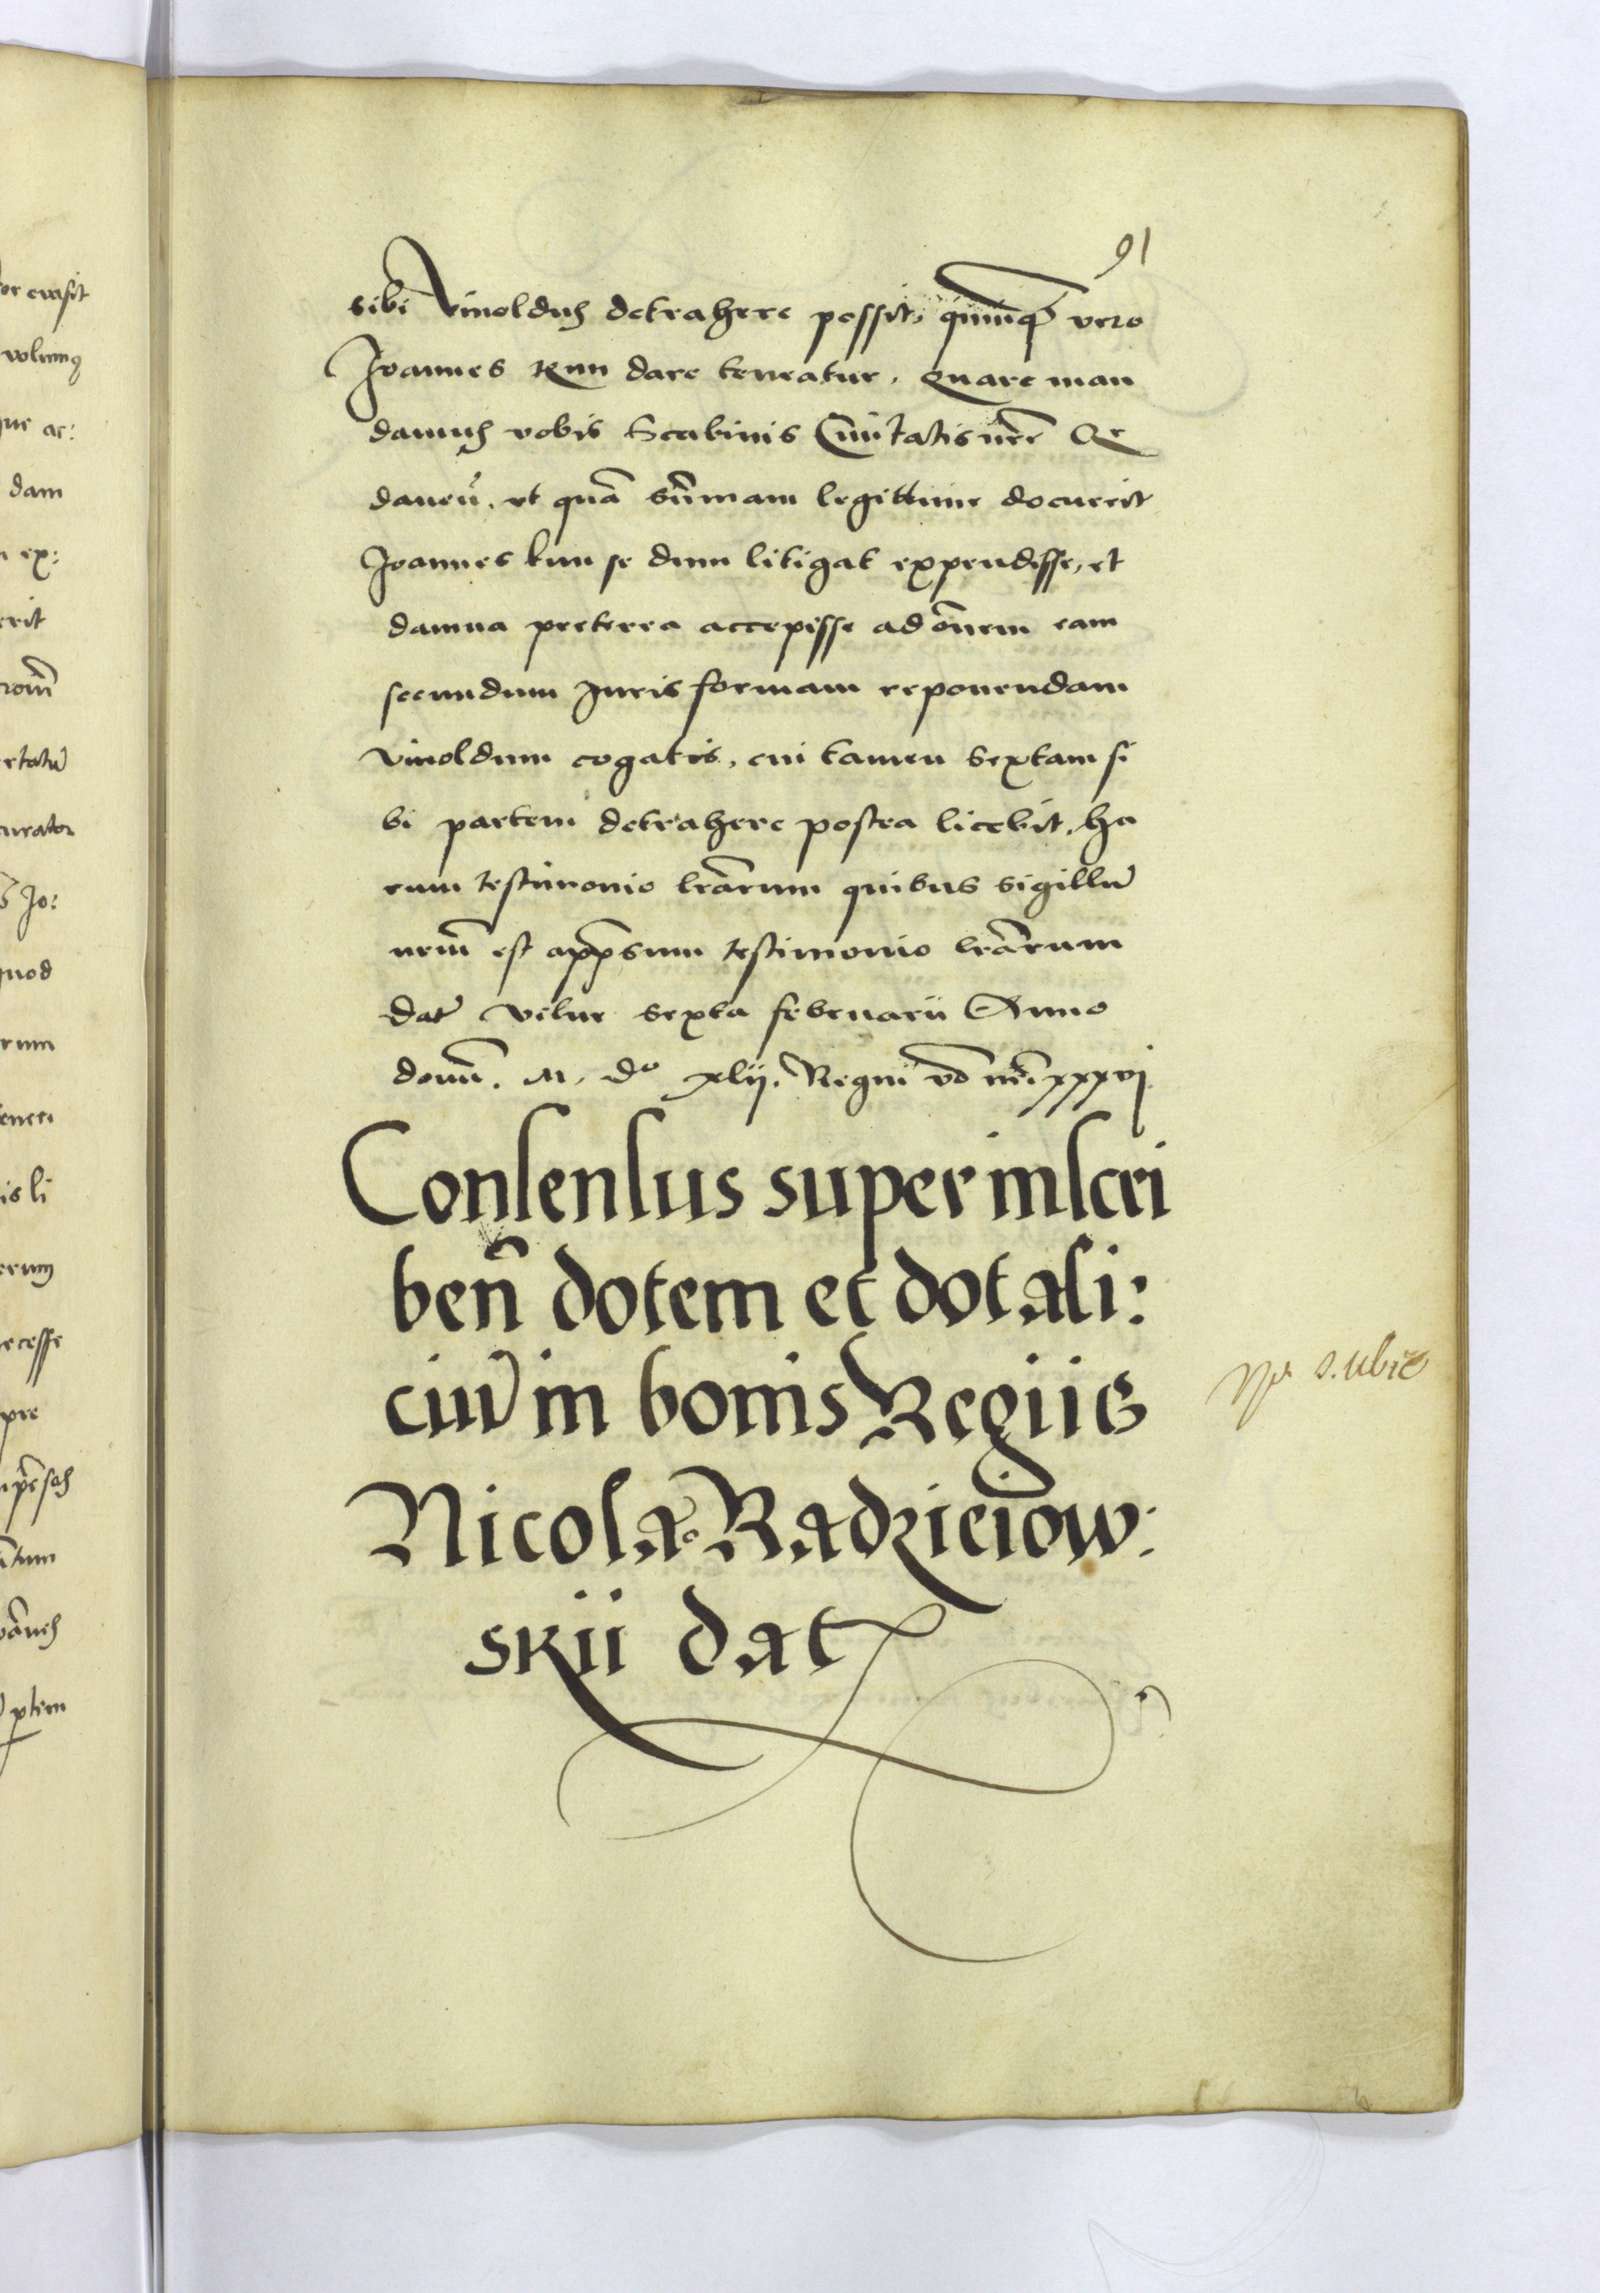 91
sibi Vinoldus detrahere possit, quinq vero
Joannes kun dare teneatur. Quare man
damus vobis Scabinis Civitatis nrē Ge
daneñ. ut quā sūmam legittime docuerit
Joannes kun se dum litigat expendisse, et
damna preterea accepisse ad ōnem eam
secundum Juris formam reponendam
vinoldum cogatis, cui tamen sextam si
bi partem detrahere postea licebit. ha
rum testimonio lrārum quibus sigillū
nrm̄ est app̄sum testimonio lrārum
dat Vilne sexta februarii Anno
domī. M. Dº xlij. Regni vō nrī xxxvj
Consensus super inscri
beñ dotem et dotali:
ciū in bonis Regiis
Nicolao Radzieiow:
skii dat
or evasit
dam
ex:
erit
curator
Jo:
quod
rum
is li
ecesse
pre
ptem